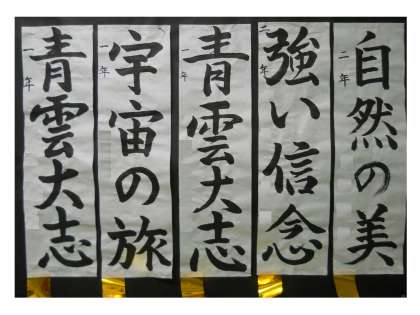 自然の美
二年
強い信念
二年
青雲大志
一年
宇宙の旅
一年
青雲大志
一年